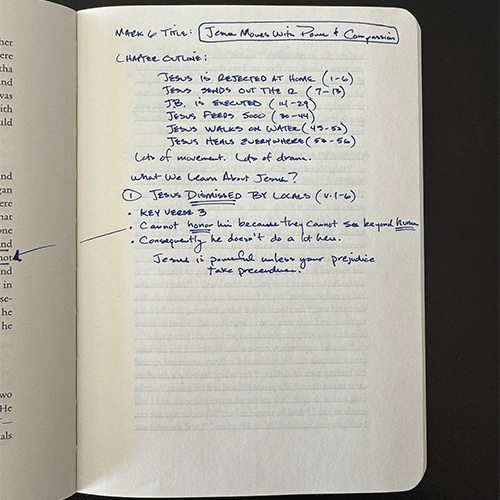 her
ere
tha
and
was
ith
uld
and
gan
ere
hat
one
and
not
and
in
se-
he
he
two
He
f—
als
MARK 6 TITLE: Jesus Moves With Power & Compassion
CHAPTER OUTLINE:
JESUS IS REJECTED AT HOME (1-6)
JESUS SENDS OUT THE 12 (7-13)
J.B. IS EXECUTED (14-29)
JESUS FEEDS 5000 (30-44)
JESUS WALKS ON WATER (45-52)
JESUS HEALS EVERYWHERE (53-56)
Lots of movement. Lots of drama.
What We Learn About Jesus?
① JESUS DISMISSED BY LOCALS (v.1-6)
• KEY VERSE 3
• Cannot honor him because they cannot see beyond human
• Consequently he doesn't do a lot here.
Jesus is powerful unless your prejudice
take precedence.